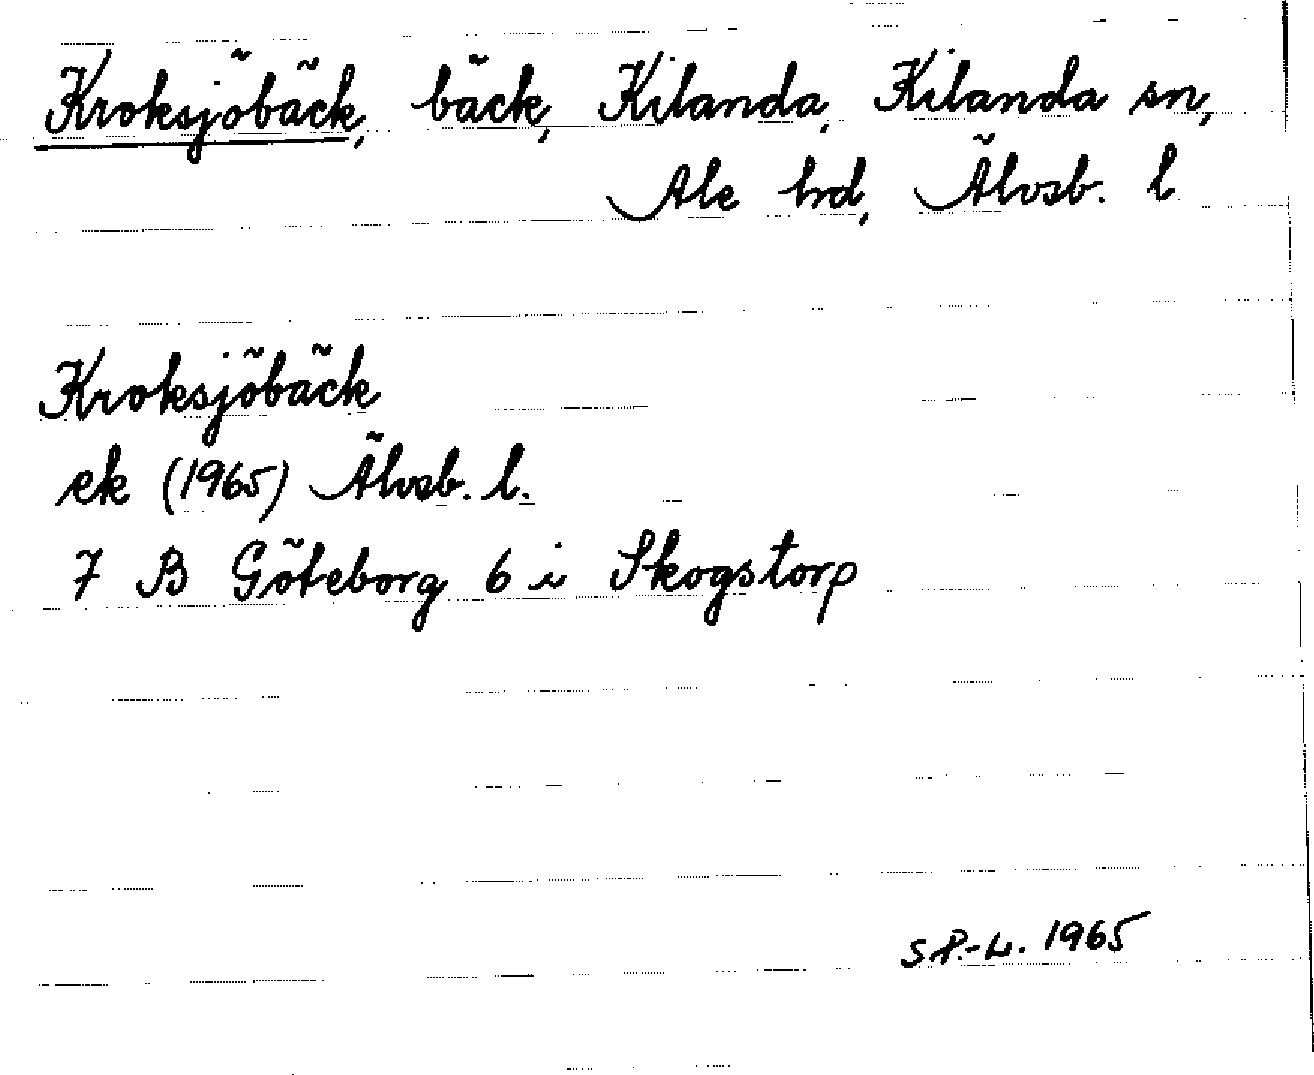 Kroksjöbäck, bäck, Kilanda, Kilanda sn,
Ale hd, Älvsb. l
Kroksjöbäck
ek (1965) Älvsb. l.
7 B Göteborg 6 i Skogstorp
S P.-L. 1965